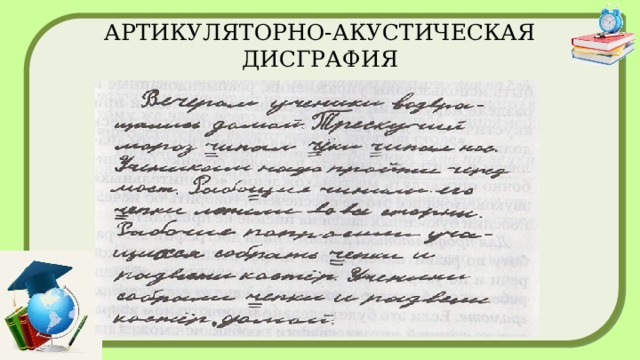 АРТИКУЛЯТОРНО-АКУСТИЧЕСКАЯ
ДИСГРАФИЯ
Вечером ученики возвра-
щались домой. Трескучий
мороз чипал чуки чипал нос.
Ученикам надо пройти через
мост. Рабощие чинили его
чепки летели во все стороны.
Рабочие попросили уча-
щихся собрать чепки и
развести костёр Ученики
собрали чепки и развели
костёр, домой.